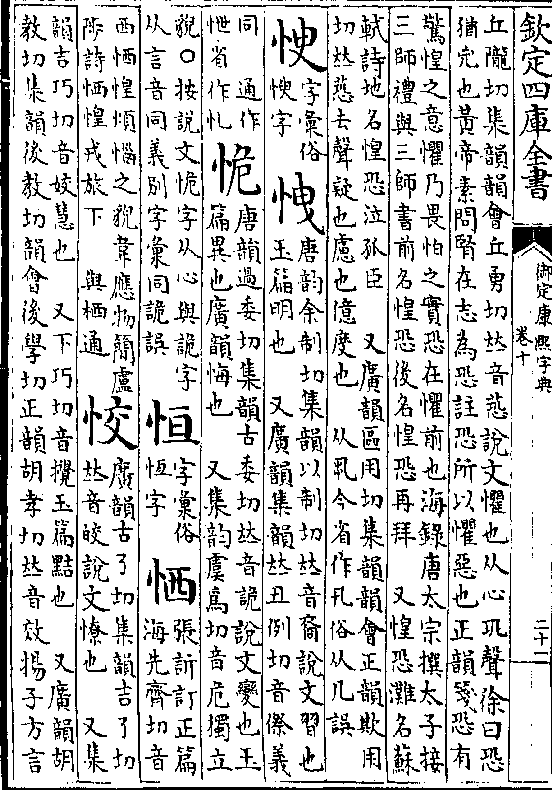 欽定四庫全書
御定康熙字典
卷十
二十二
丘隴切集韻韻會丘勇切𠀤音恐說文懼也从心巩聲徐曰恐
猶兇也黃帝素問腎在志為恐註恐所以懼惡也正韻箋恐有
驚惶之意懼乃畏怕之實恐在懼前也海錄唐太宗撰太子接
三師禮與三師書前名惶恐後名惶恐再拜 又惶恐灘名蘇
軾詩地名惶恐泣孤臣 又廣韻區用切集韻韻會正韻欺用
切𠀤恐去聲疑也慮也億度也 从巩今省作巩俗从凡誤
㥌
字彙俗
㥌字
怈
唐韻余制切集韻以制切𠀤音裔說文習也
玉篇明也 又廣韻集韻𠀤丑例切音傺義
同 通作
怈省作忕
恑
唐韻過委切集韻古委切𠀤音詭說文變也玉
篇異也廣韻悔也 又集韵虞為切音危獨立
貌○按說文恑字从心與詭字
从言音同義别字彙同詭誤
恒
字彙俗
恆字
恓
張訢訂正篇
海先齊切音
西恓惶煩惱之貌韋應物簡盧
陟詩恓惶戎旅下 與栖通
恔
廣韻古了切集韻吉了切
𠀤音皎說文憭也 又集
韻吉巧切音姣慧也 又下巧切音攪玉篇黠也 又廣韻胡
教切集韻後教切韻會後學切正韻胡孝切𠀤音效揚子方言